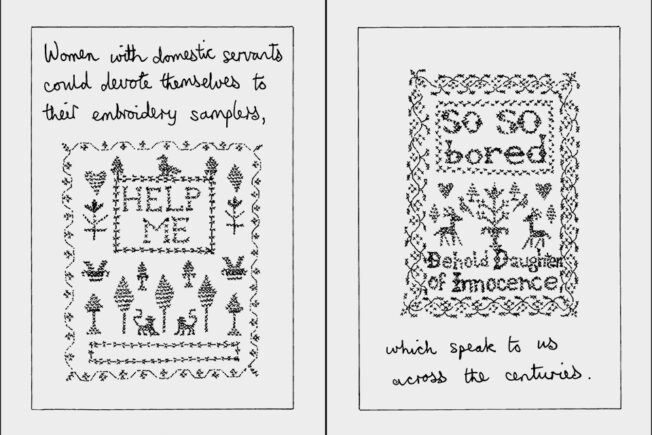 Women with domestic servants
could devote themselves to
their embroidery samplers,
HELP
ME
SO SO
bored
Behold Daughter
of Innocence
which speak to us
across the centuries.